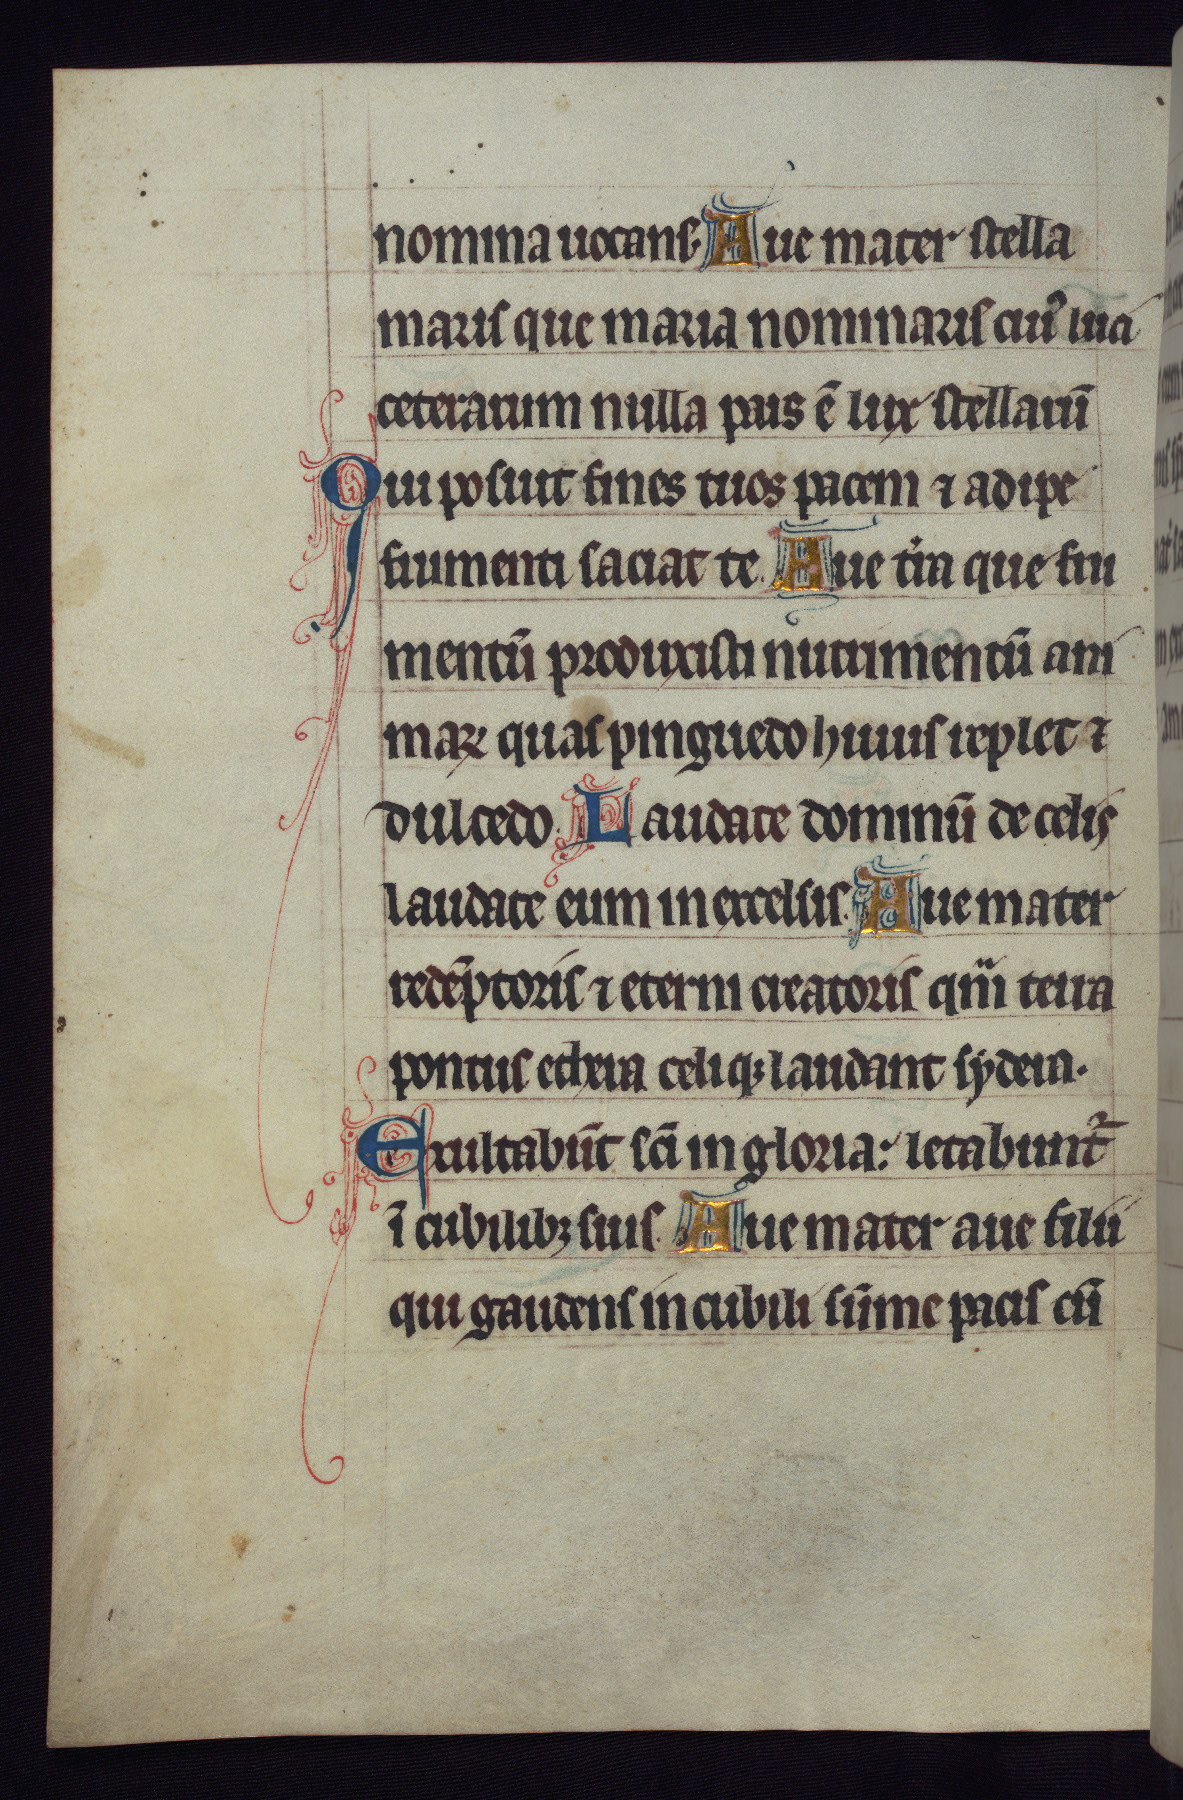 nomina uocans. Aue mater stella
maris que maria nominaris cui᷒ luci
ceterarum nulla pars ē lux stellarū
Qui posuit fines tuos pacem ⁊ adipe
frumenti saciat te. Aue t̓ra que fru
mentū produxisti nutrimentū ani
maꝝ quas pinguedo huius replet ⁊
dulcedo. Laudate dominū de celis
laudate eum in excelsis. Aue mater
redēptoris ⁊ eterni creatoris quē terra
pontus ethera celiqꝫ laudant sydera.
Exultabūt sc̄i in gloria: letabunt᷑
ī cubilibꝫ suis. Aue mater aue filii
qui gaudens in cubili sūme pacis cū